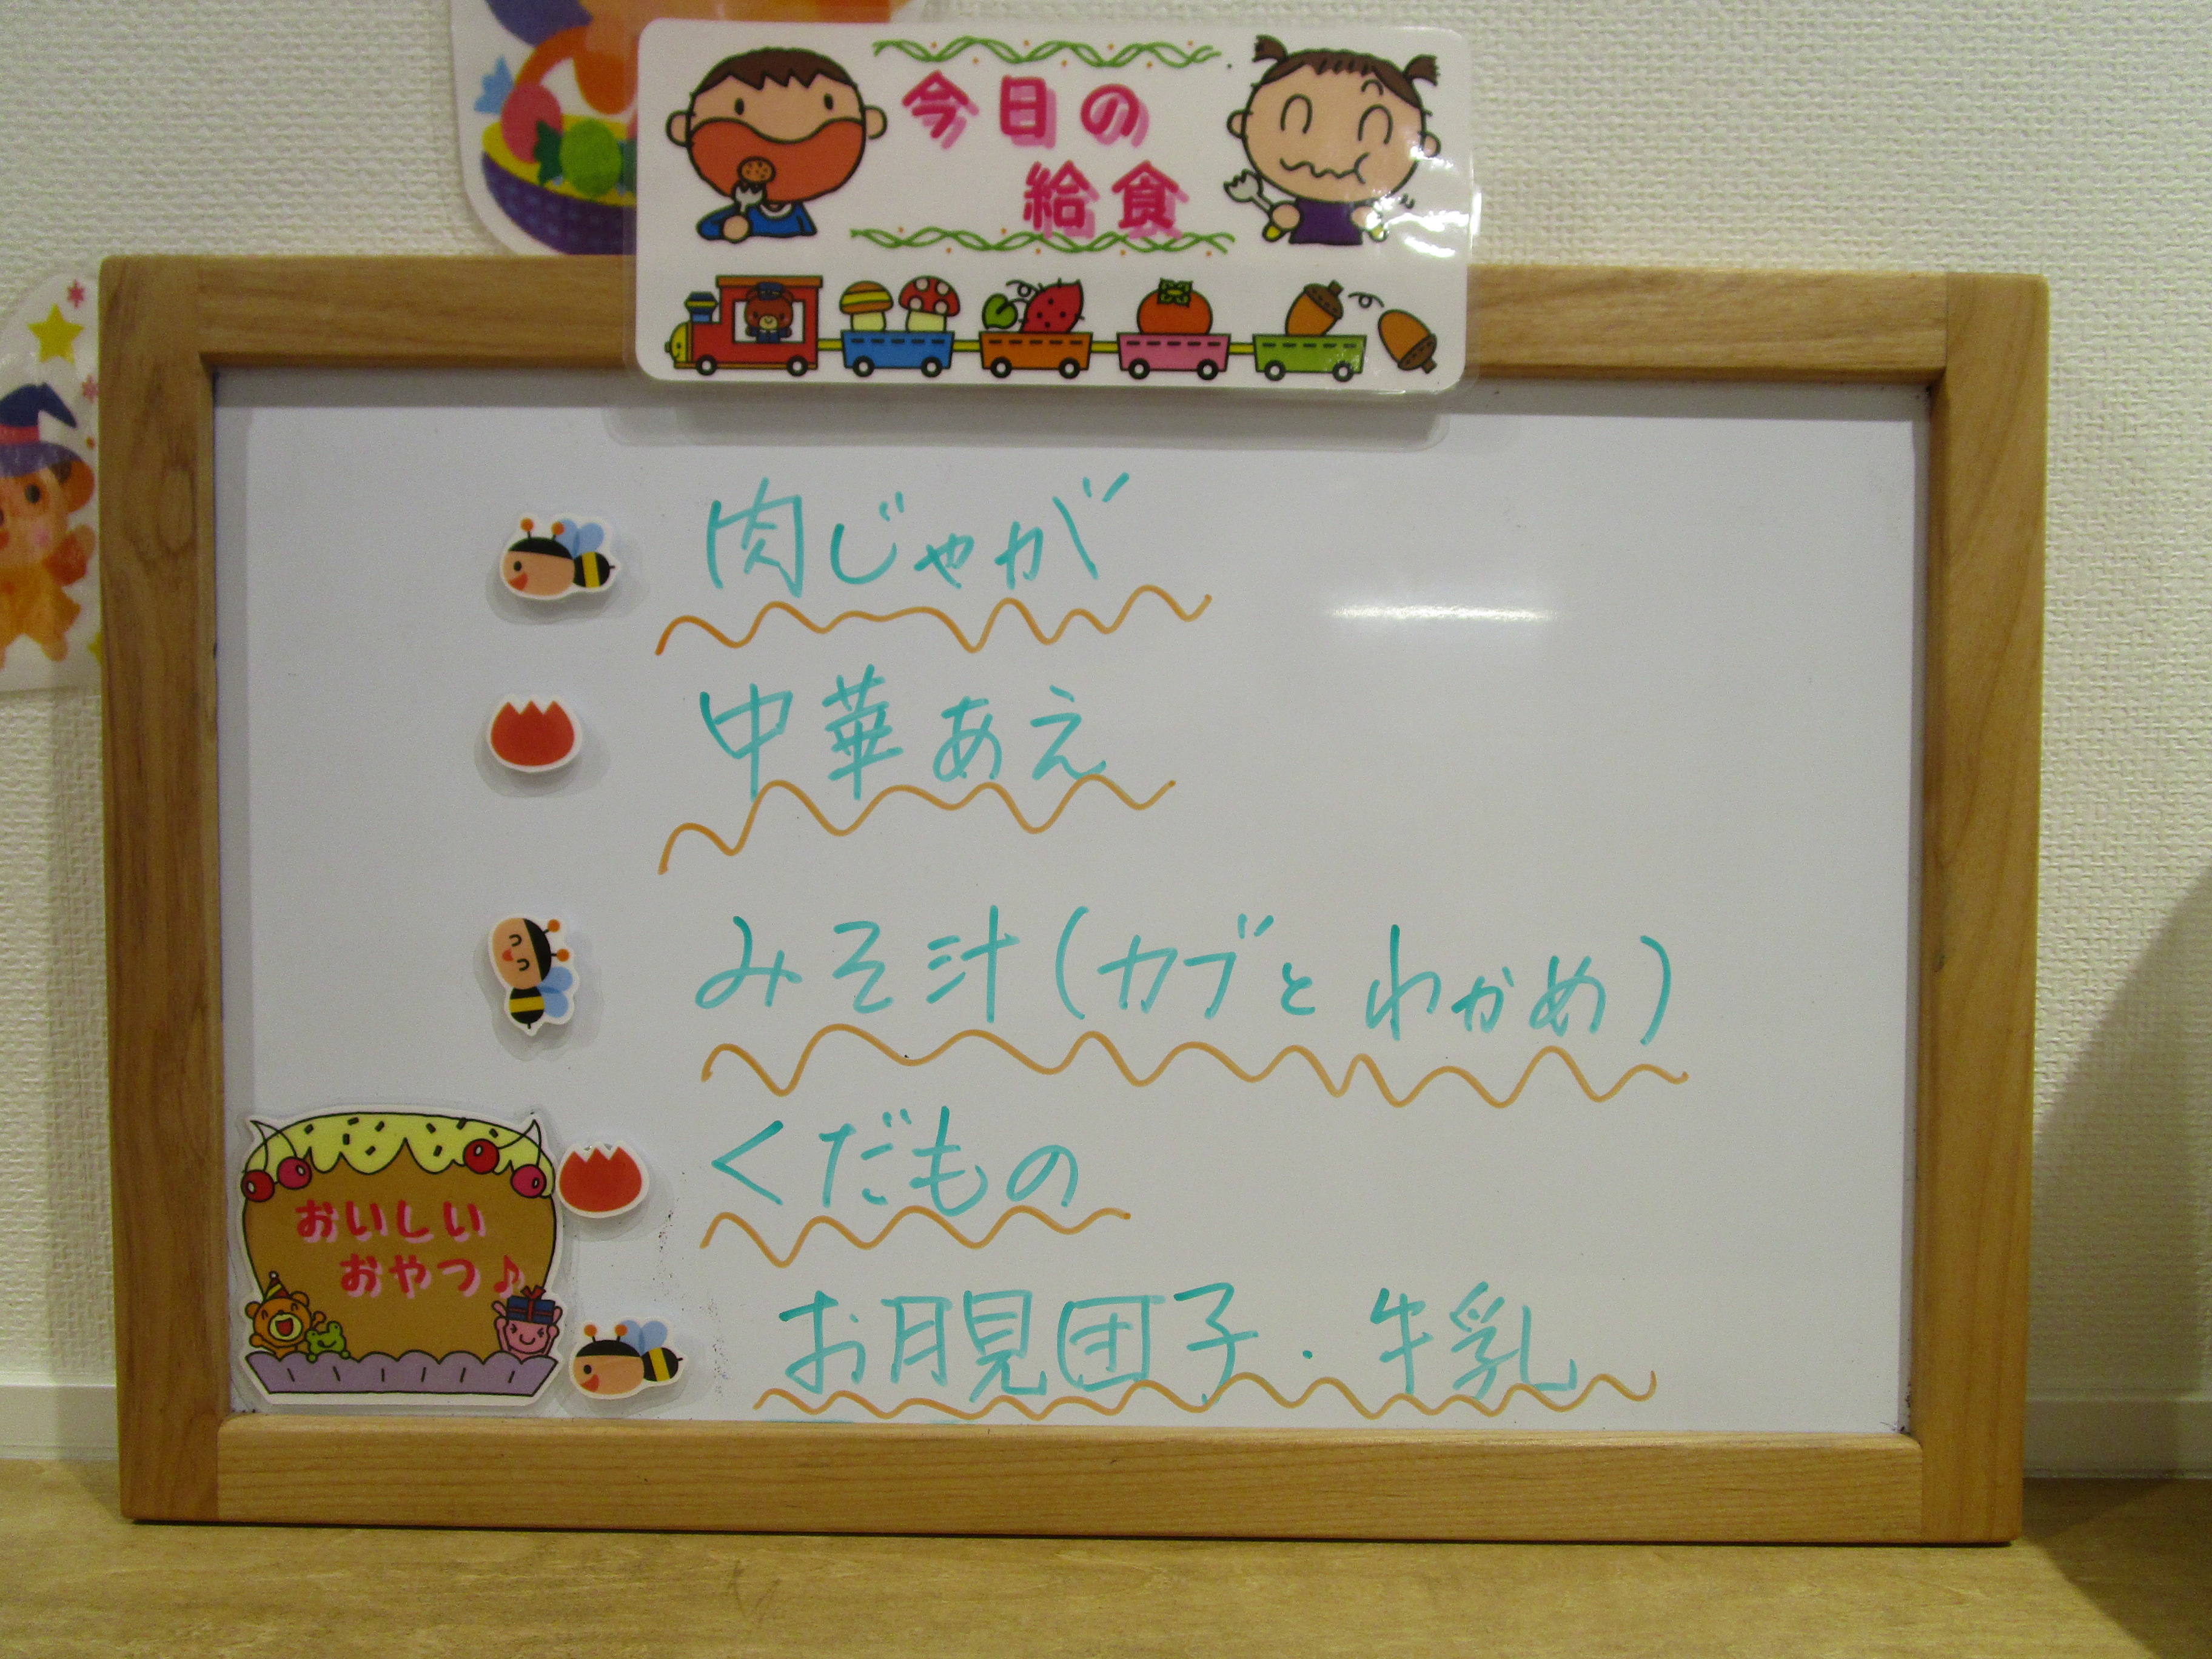 今日の
給食
肉じゃが
中華あえ
みそ汁(カブとわかめ)
くだもの
おいしい
おやつ♪
お月見団子・牛乳